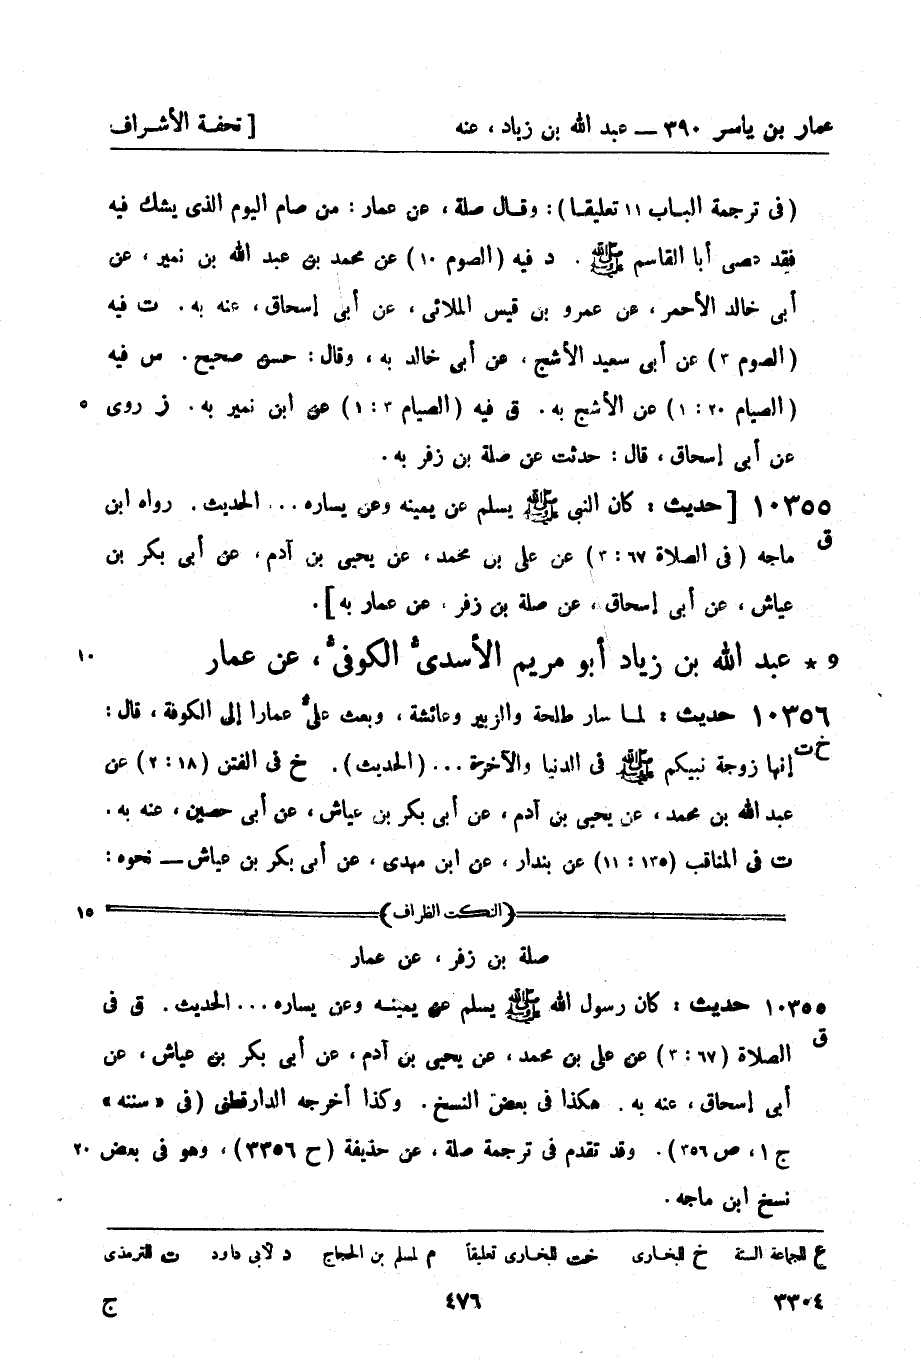 عمار بن ياسر ٣٩٠ — عبد الله بن زياد ، عنه [ تحفة الأشراف
(فى ترجمة الباب ١١ تعليقا) : وقال صلة ، عن عمار : من صام اليوم الذى يشك فيه
فقد عصى أبا القاسم ﷺ . د فيه (الصوم ١٠) عن محمد بن عبد الله بن نمير ، عن
أبى خالد الأحمر ، عن عمرو بن قيس الملائى ، عن أبى إسحاق ، عنه به . ت فيه
(الصوم ٣) عن أبى سعيد الأشج ، عن أبى خالد به ، وقال : حسن صحيح . س فيه
(الصيام ٢٠ : ١) عن الأشج به . ق فيه (الصيام ٣ : ١) عن ابن نمير به . ز روى ٥
عن أبى إسحاق ، قال : حدثت عن صلة بن زفر به .
١٠٣٥٥ [ حديث : كان النبى ﷺ يسلم عن يمينه وعن يساره ... الحديث . رواه ابن
ق ماجه (فى الصلاة ٦٧ : ٣) عن على بن محمد ، عن يحيى بن آدم ، عن أبى بكر بن
عياش ، عن أبى إسحاق ، عن صلة بن زفر ، عن عمار به ] .
و * عبد الله بن زياد أبو مريم الأسدىّ الكوفىّ ، عن عمار ١٠
١٠٣٥٦ حديث : لما سار طلحة والزبير وعائشة ، وبعث علىّ عمارا إلى الكوفة ، قال :
خ ت إنها زوجة نبيكم ﷺ فى الدنيا والآخرة ... (الحديث) . خ فى الفتن (١٨ : ٢) عن
عبد الله بن محمد ، عن يحيى بن آدم ، عن أبى بكر بن عياش ، عن أبى حصين ، عنه به .
ت فى المناقب (١٣٥ : ١١) عن بندار ، عن ابن مهدى ، عن أبى بكر بن عياش — نحوه :
(النكت الظراف) ١٥
صلة بن زفر ، عن عمار
١٠٣٥٥ حديث : كان رسول الله ﷺ يسلم عن يمينه وعن يساره ... الحديث . ق فى
ق الصلاة (٦٧ : ٣) عن على بن محمد ، عن يحيى بن آدم ، عن أبى بكر بن عياش ، عن
أبى إسحاق ، عنه به . هكذا فى بعض النسخ . وكذا أخرجه الدارقطنى (فى «سننه»
ج ١ ، ص ٣٥٦) . وقد تقدم فى ترجمة صلة ، عن حذيفة (ح ٣٣٥٦) ، وهو فى بعض ٢٠
نسخ ابن ماجه .
ع للجماعة الستة خ للبخارى خت للبخارى تعليقاً م لمسلم بن الحجاج د لأبى داود ت للترمذى
٣٣٠٤ ٤٧٦ ج